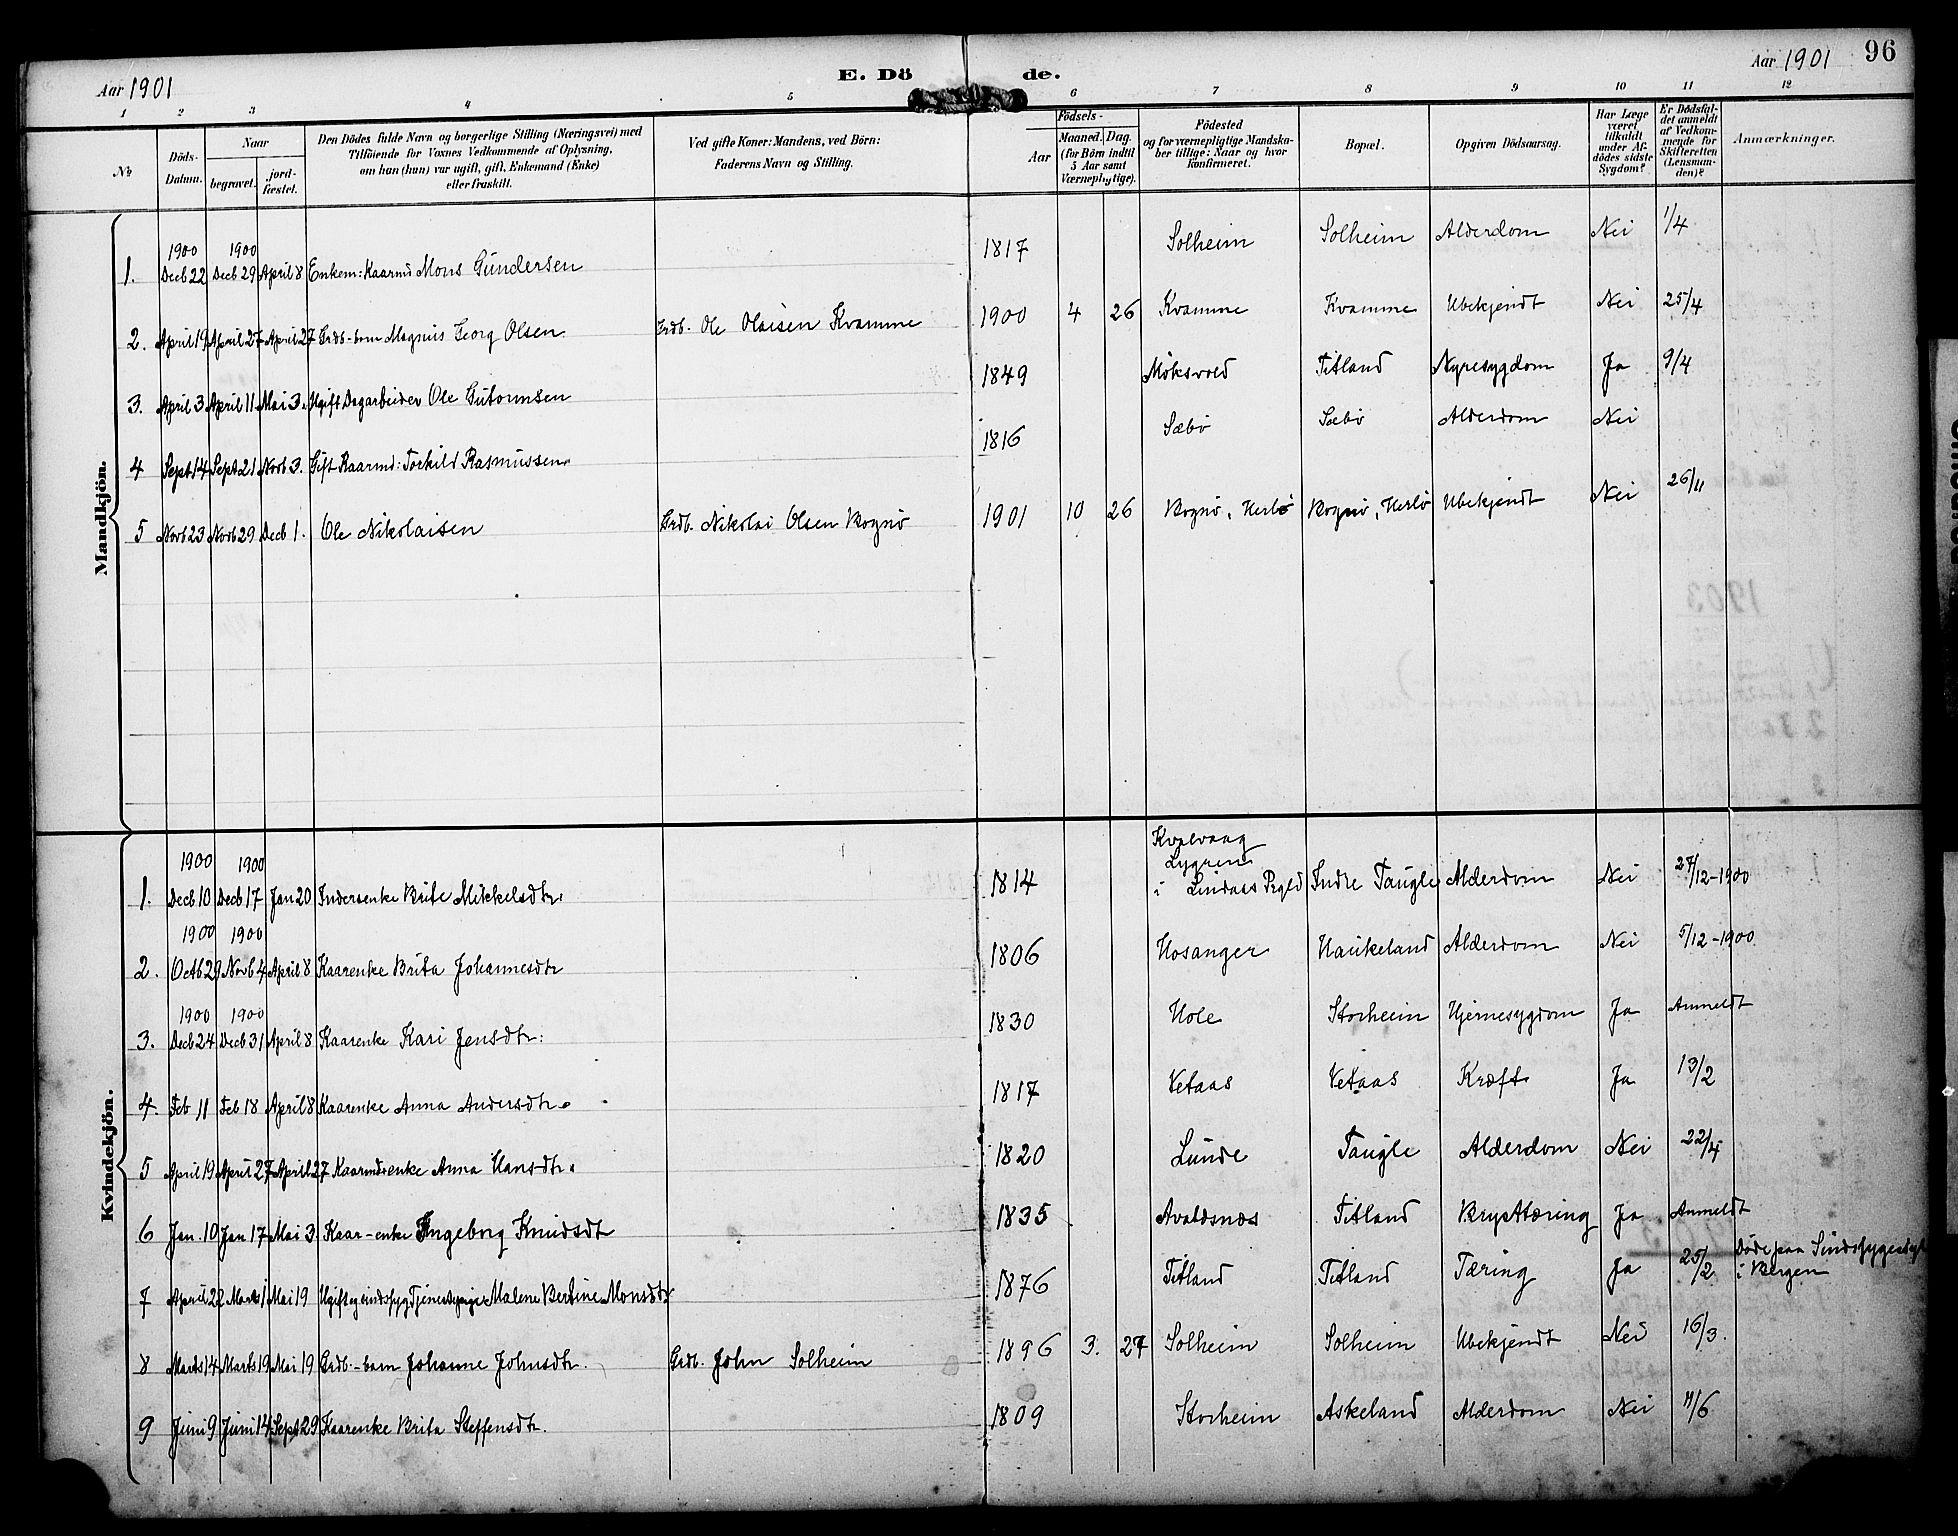 Aar 1901
E. Dö de.
Aar 1901 96
1 2 3 4 5 6 7 8 9 10 11 12
No
Döds-Datum.
Naar
begravet.
jord-fæstet.
Den Dödes fulde Navn og borgerlige Stilling (Næringsvei) med
Tilföiende for Voxnes Vedkommende af Oplysning,
om han (hun) var ugift, gift, Enkemand (Enke)
eller fraskilt.
Ved gifte Koner: Mandens, ved Börn:
Faderens Navn og Stilling.
Födsels-
Aar
Maaned. Dag.
(for Börn indtil
5 Aar samt
Værnepligtige).
Födested
og for værnepligtige Mandska-
ber tillige: Naar og hvor
konfirmeret.
Bopæl.
Opgiven Dödsaarsag.
Har Læge
været
tilkaldt
under Af-
dödes sidste
Sygdom?
Er Dödsfal-
det anmeldt
af Vedkom-
mende for
Skifteretten
(Lensman-
den)?
Anmærkninger.
Mandkjön.
1900 1900
1. Decb 22 Decb 29 April 8 Enkem: Kaarmd Mons Gundersen 1817 Solheim Solheim Alderdom Nei 1/4
2. April 19 April 27 April 27 Grdb-barn Magnus Georg Olsen Grdb. Ole Olaisen Kvamme 1900 4 26 Kvamme Kvamme Ubekjendt Nei 25/4
3. April 3 April 11 Mai 3. Ugift Dagarbeider Ole Guttormsen 1849 Möksvold Titland Nyresygdom Ja 9/4
4 Sept 14 Sept 21 Novb 3. Gift Kaarmd: Torkild Rasmussen 1816 Sæbö Sæbö Alderdom Nei
5 Novb 23 Novb 29 Decb 1. Ole Nikolaisen Grdb. Nikolai Olsen Bognö 1901 10 26 Bognö, Herlö Bognö, Herlö Ubekjendt Nei 26/11
Kvindekjön.
1900 1900
1. Decb 10 Decb 17 Jan 20 Inderenke Brite Mikkelsdtr. 1814 Kvalvaag
Lygren
i Lindaas Prgld Indre Taugle Alderdom Nei 27/12-1900
1900 1900
2. Octb 29 Novb 4 April 8 Kaarenke Brita Johannesdtr 1806 Hosanger Haukeland Alderdom Nei 5/12-1900
1900 1900
3. Decb 24 Decb 31 April 8 Kaarenke Kari Jensdtr: 1830 Hole Storheim Hjernesygdom Ja Anmeldt
4. Feb 11 Feb 18 April 8 Kaarenke Anna Andersdtr. 1817 Vetaas Vetaas Kræft Ja 13/2
5 April 19 April 27 April 27 Kaarmdsenke Anna Hansdtr. 1820 Lunde Taugle Alderdom Nei 22/4
6 Jan. 10 Jan 17 Mai 3. Kaar-enke Ingeborg Knudsdt 1835 Avaldsnæs Titland Brysttæring Ja Anmeldt
7 April 22 Marts 1 Mai 19 Ugift og sindssyg Tjenestepige Malene Bertine Monsdtr 1876 Titland Titland Tæring Ja 25/2 Döde paa Sindssygeasyl
i Bergen
8 Marts 14 Marts 19 Mai 19 Grdb.-barn Johanne Johnsdtr. Grdb. John Solheim 1896 3. 27 Solheim Solheim Ubekjendt Nei 16/3.
9 Juni 9 Juni 14 Sept 29 Kaarenke Brita Steffensdtr. 1809 Storheim Askeland Alderdom Nei 11/6